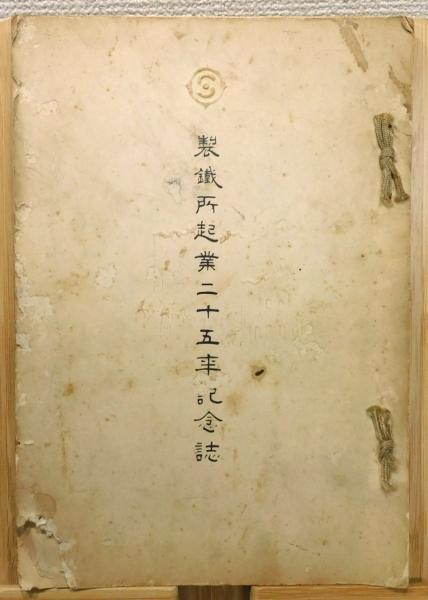 製鐵所起業二十五年記念誌